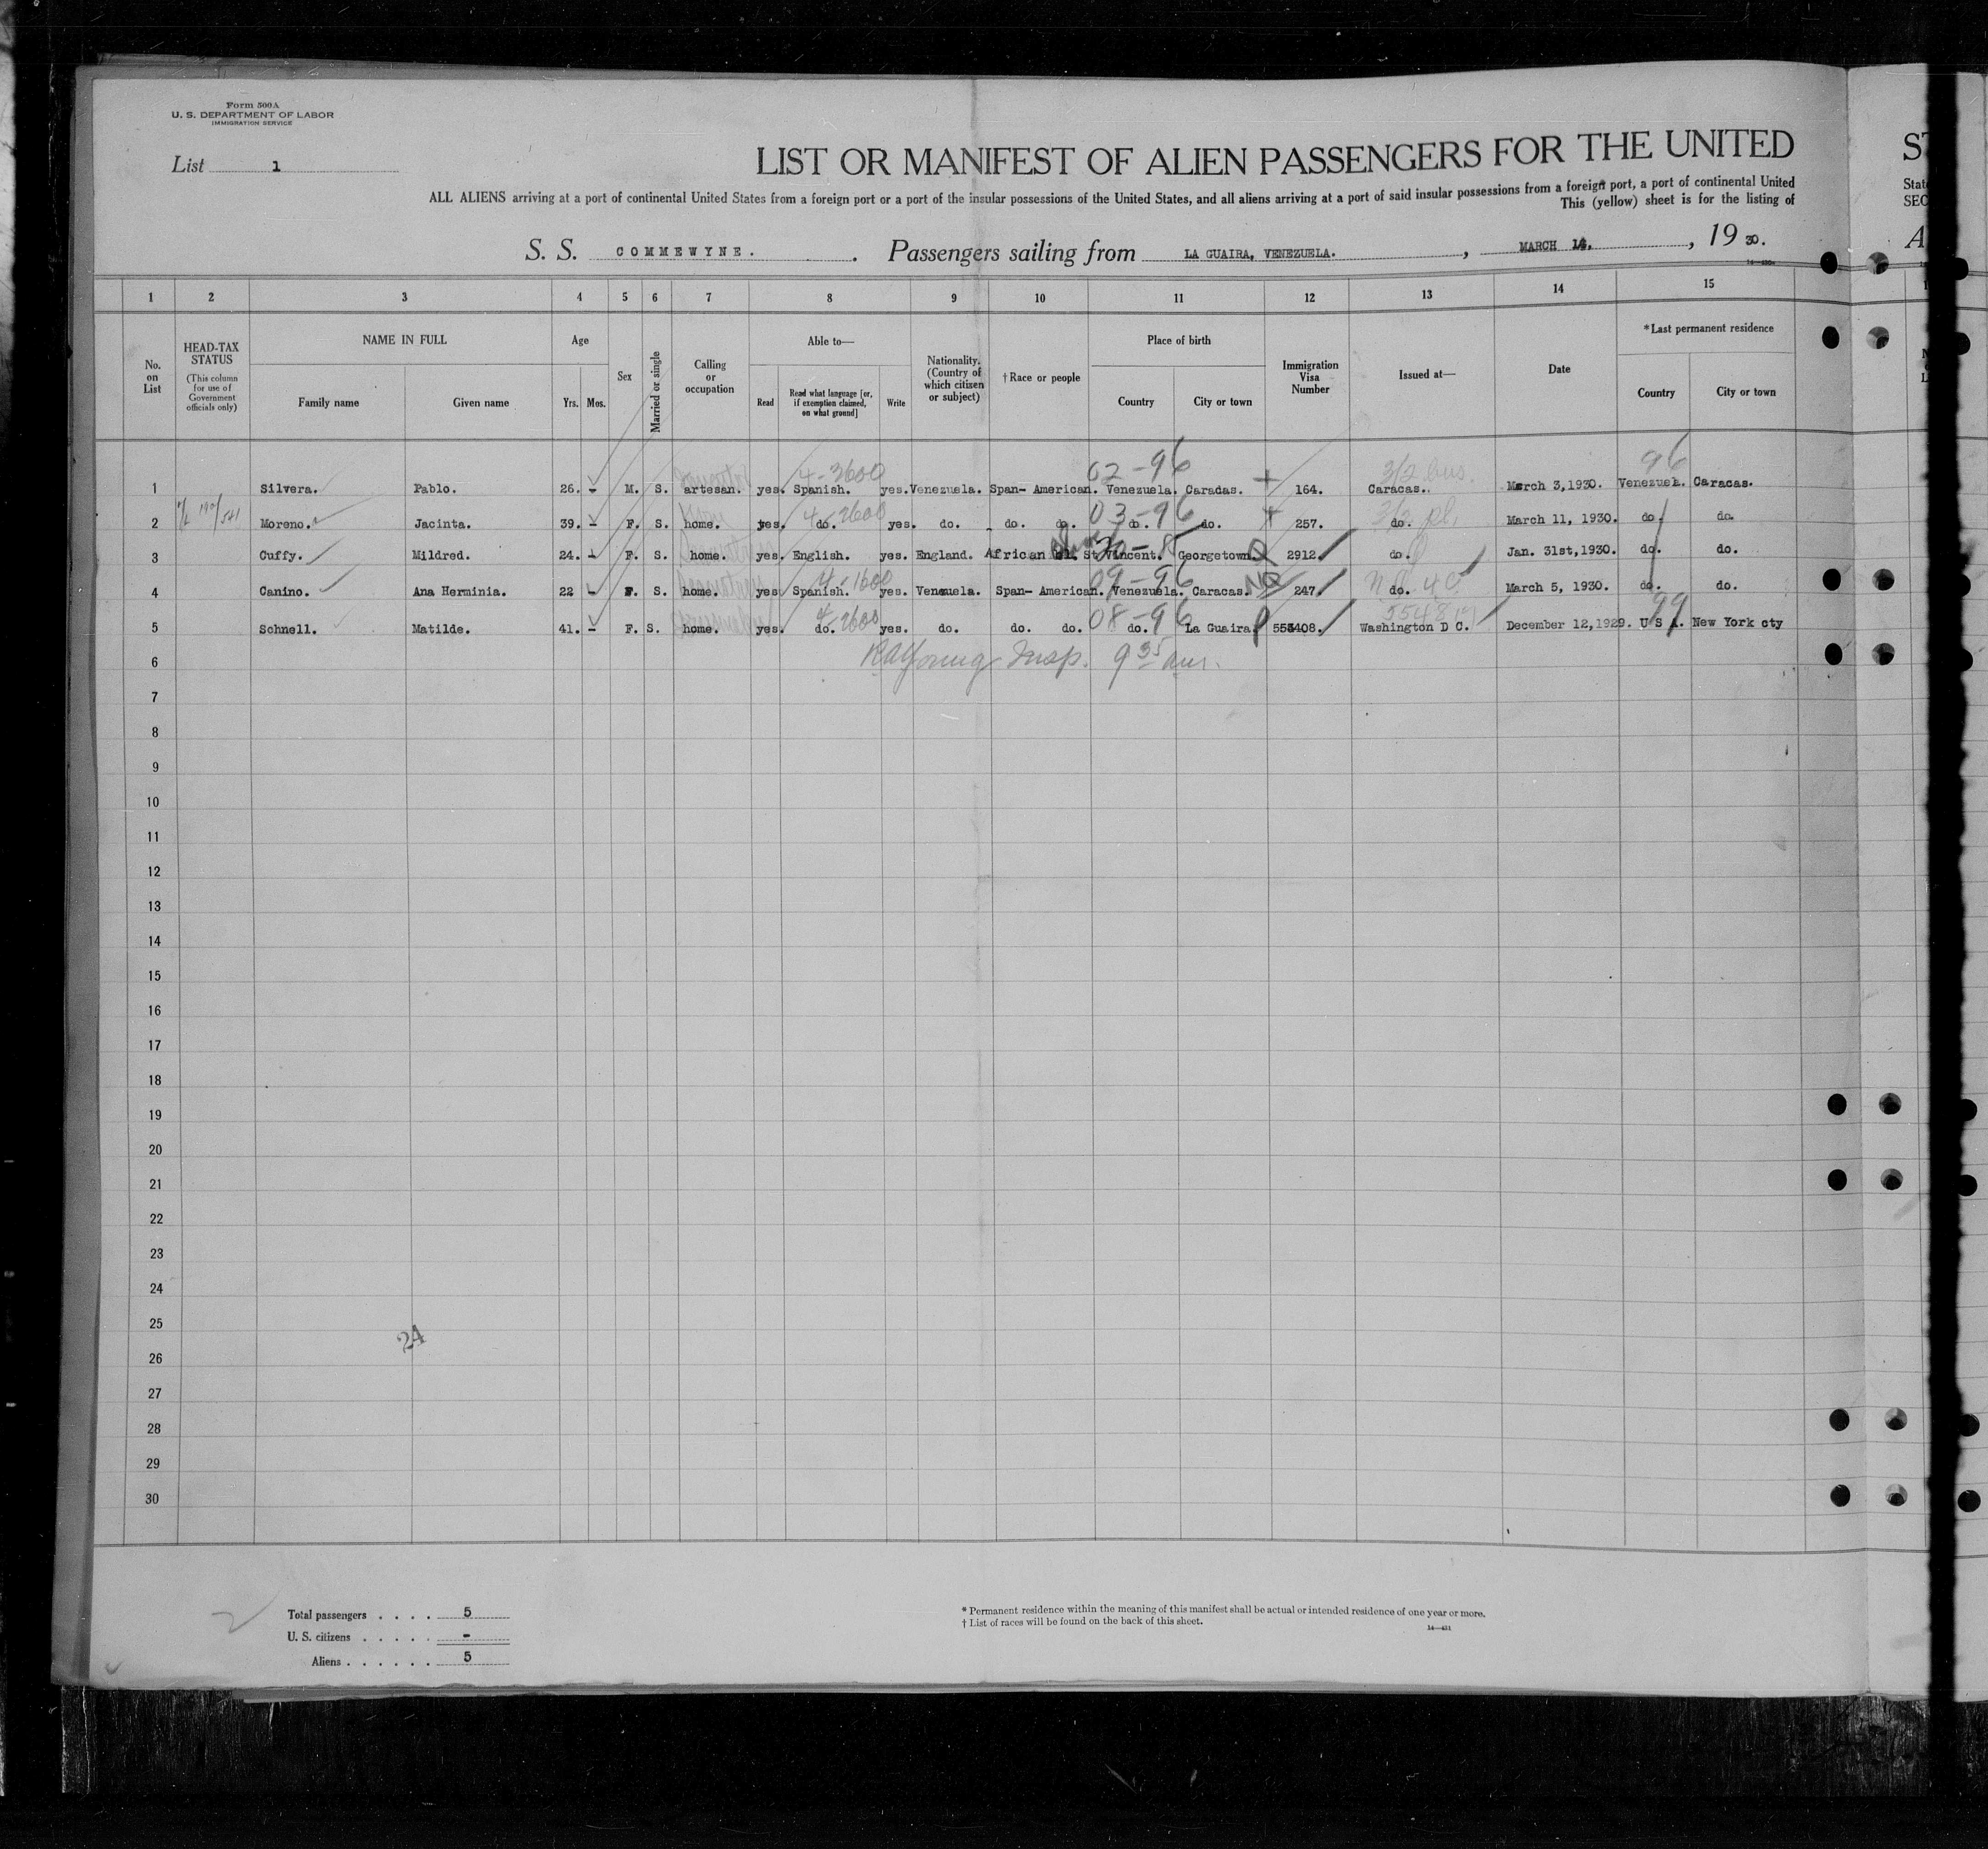 Form 500A
U. S. DEPARTMENT OF LABOR
IMMIGRATION SERVICE
List 1
LIST OR MANIFEST OF ALIEN PASSENGERS FOR THE UNITED
ALL ALIENS arriving at a port of continental United States from a foreign port or a port of the insular possessions of the United States, and all aliens arriving at a port of said insular possessions from a foreign port, a port of continental United
This (yellow) sheet is for the listing of
S. S. COMMEWYNE. Passengers sailing from LA GUAIRA, VENEZUELA. , MARCH 14. , 19 30.
1 2 3 4 5 6 7 8 9 10 11 12 13 14 15
No. on List
HEAD-TAX STATUS
(This column for use of Government officials only)
NAME IN FULL
Family name Given name
Age
Yrs. Mos.
Sex
Married or single
Calling or occupation
Able to—
Read Read what language [or, if exemption claimed, on what ground] Write
Nationality. (Country of which citizen or subject)
†Race or people
Place of birth
Country City or town
Immigration Visa Number
Issued at—
Date
*Last permanent residence
Country City or town
4-3600 02-96 3/2 bus. 96
1 Silvera. Pablo. 26. - M. S. artesan. yes. Spanish. yes. Venezuela. Span- American. Venezuela. Caracas. 164. Caracas. March 3,1930. Venezuela. Caracas.
4-2600 03-96 3/2 pl.
2 Moreno. Jacinta. 39. - F. S. home. yes. do. yes. do. do. do. do. do. 257. do. March 11, 1930. do. do.
3 Cuffy. Mildred. 24. - F. S. home. yes. English. yes. England. African St Vincent. Georgetown. 2912. do. Jan. 31st,1930. do. do.
4-1600 09-96
4 Canino. Ana Herminia. 22 - F. S. home. yes. Spanish. yes. Venezuela. Span- American. Venezuela. Caracas. 247. do. March 5, 1930. do. do.
4-2600 08-96 99
5 Schnell. Matilde. 41. - F. S. home. yes. do. yes. do. do. do. do. La Guaira. Washington D C. December 12,1929. U S A. New York cty
Insp. 9 35 am.
6
7
8
9
10
11
12
13
14
15
16
17
18
19
20
21
22
23
24
25
24
26
27
28
29
30
Total passengers . . . . 5
U. S. citizens . . . . . -
Aliens . . . . . . 5
* Permanent residence within the meaning of this manifest shall be actual or intended residence of one year or more.
† List of races will be found on the back of this sheet.
14—431